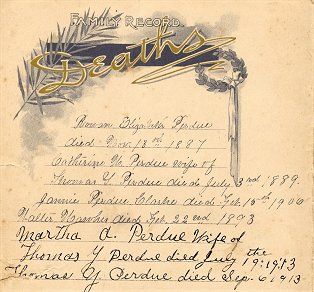 FAMILY RECORD
Deaths
Elizabeth Perdue
died Nov. 18th 1887
Catherine W. Perdue wife of
Thomas Y. Perdue died July 3rd 1889.
Fannie Perdue Clarke died Feb 15th 1906
Walter Hawks died Feb. 22nd 1893
Martha A. Perdue Wife of
Thomas Y Perdue died July the 19, 1913
Thomas Y Perdue died Sep. 6, 1913